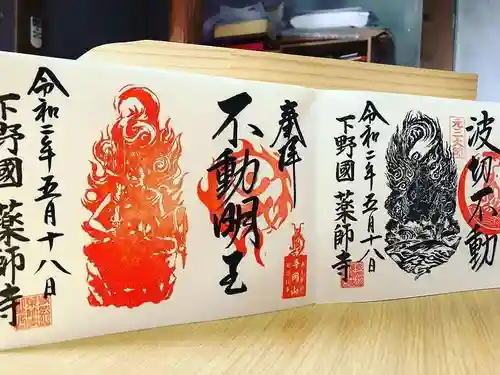 奉拝
不動明王
令和二年五月十八日
下野國 薬師寺
波切不動
令和二年五月十八日
下野國 薬師寺